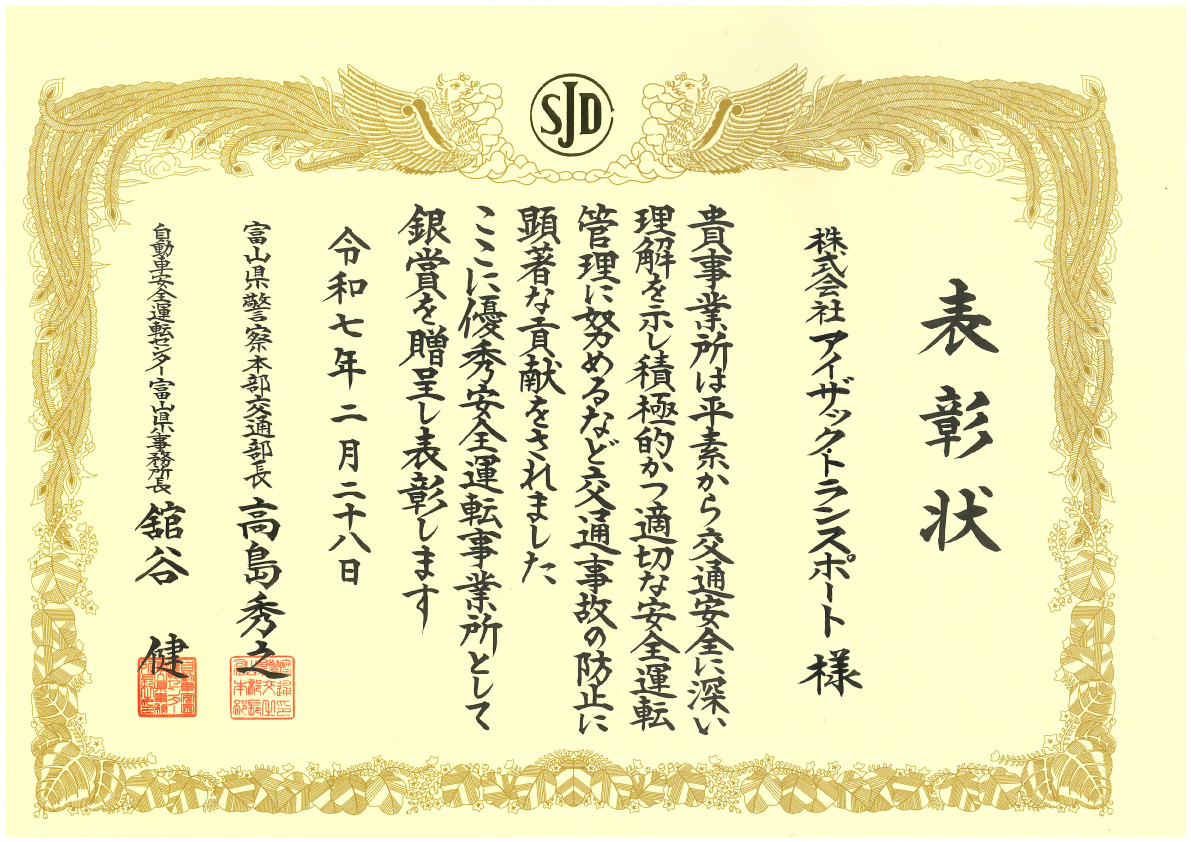 SJD
表彰状
株式会社 アイザック・トランスポート 様
貴事業所は平素から交通安全に深い
理解を示し積極的かつ適切な安全運転
管理に努めるなど交通事故の防止に
顕著な貢献をされました
ここに優秀安全運転事業所として
銀賞を贈呈し表彰します
令和七年二月二十八日
富山県警察本部交通部長 高島秀之
自動車安全運転センター富山県事務所長 舘谷 健